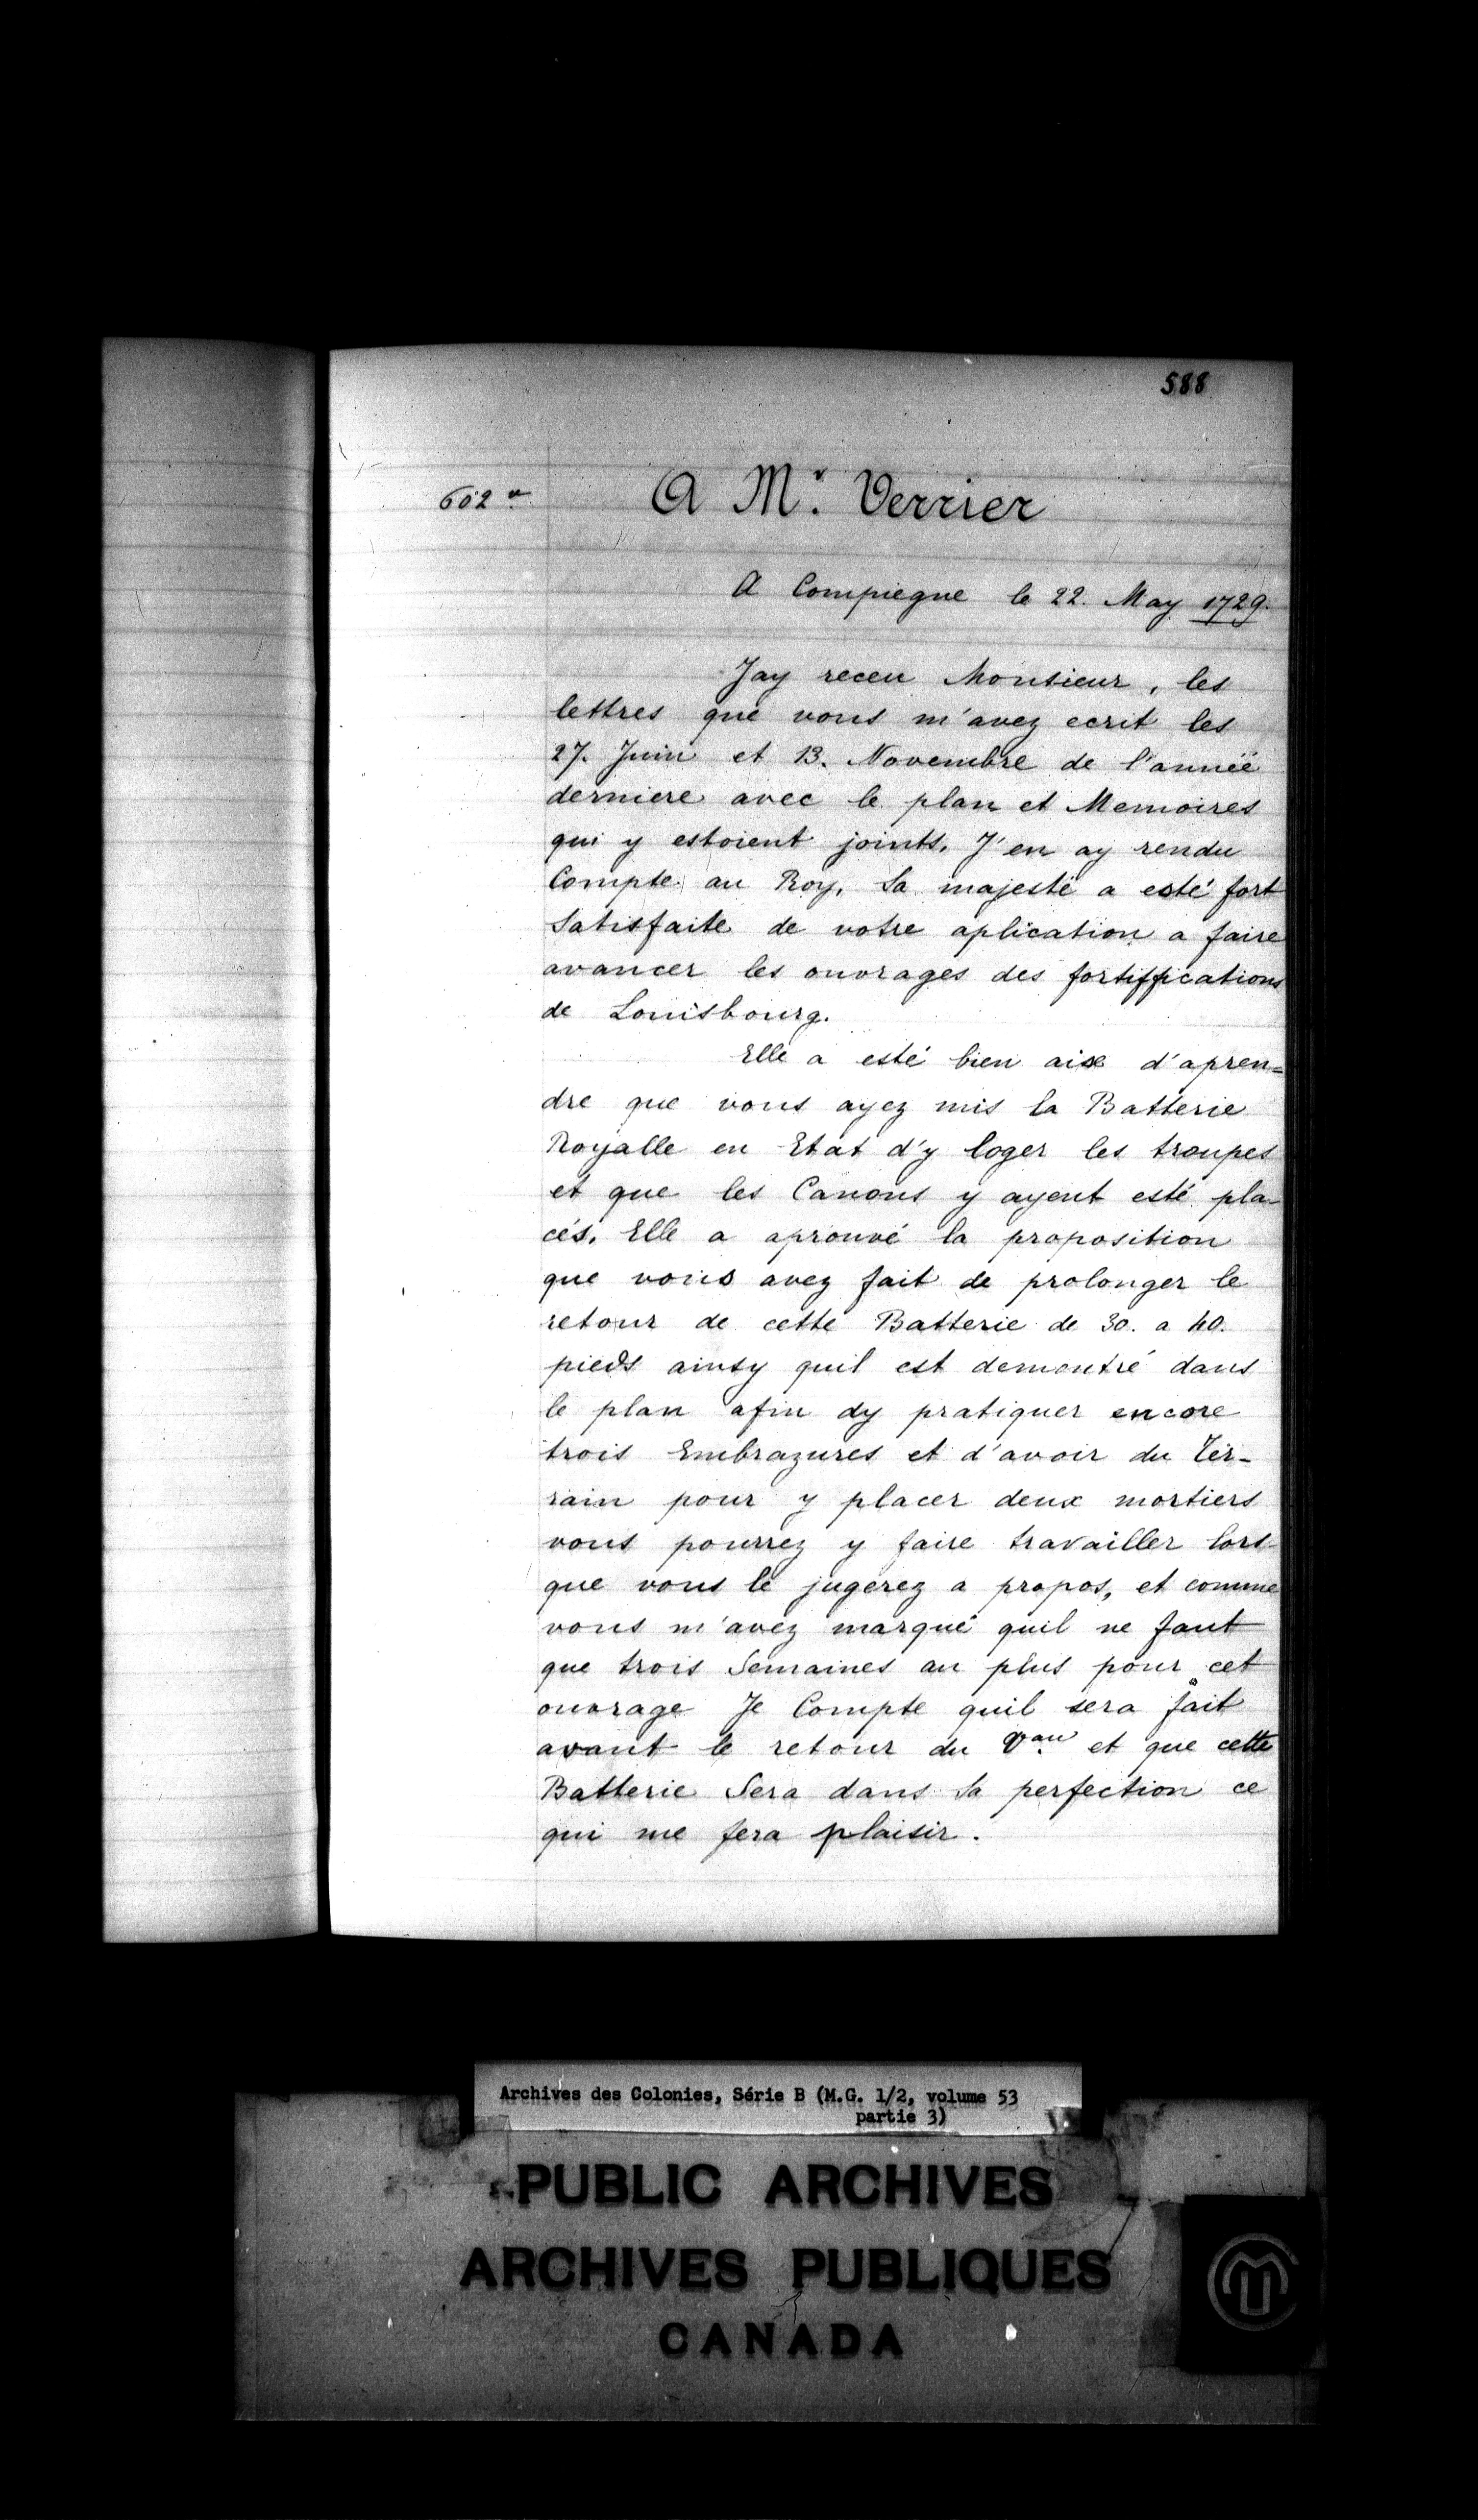 588
602 v.
A Mr. Verrier
A Compiegne le 22. May 1729.
Jay receu Monsieur, les
lettres que vous m'avez ecrit les
27. Juin et 13. Novembre de l'année
derniere avec le plan et Memoires
qui y estoient joints. J'en ay rendu
Compte au Roy, Sa majesté a esté fort
Satisfaite de votre aplication a faire
avancer les ouvrages des fortiffications
de Louisbourg.
Elle a esté bien aise d'apren=
dre que vous ayez mis la Batterie
Royalle en Etat d'y loger les troupes
et que les Canons y ayent esté pla-
cés. Elle a aprouvé la proposition
que vous avez fait de prolonger le
retour de cette Batterie de 30. a 40.
pieds ainsy quil est demontré dans
le plan afin dy pratiquer encore
trois Embrazures et d'avoir du Ter-
rain pour y placer deux mortiers
vous pourrez y faire travailler lors-
que vous le jugerez a propos, et comme
vous m'avez marqué quil ne faut
que trois Semaines au plus pour cet
ouvrage Je Compte quil sera fait
avant le retour du Vau. et que cette
Batterie Sera dans sa perfection ce
qui me fera plaisir.
Archives des Colonies, Série B (M.G. 1/2, volume 53
partie 3)
PUBLIC ARCHIVES
ARCHIVES PUBLIQUES
CANADA